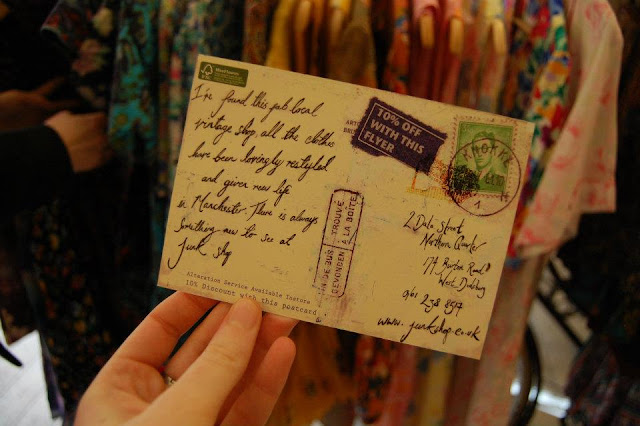 I've found this fab local
vintage shop all the clothes
have been lovingly restyled
and given new life
in Manchester. There is always
something new to see at
Junk shop
Alteration Service Available Instore
10% Discount with this postcard
10% OFF
WITH THIS
FLYER
TROUVÉ
À LA BOÎTE
IN DE BUS
GEVONDEN
2 Dale Street
Northern Quarter
174 Burton Road
West Didsbury
0161 238 8517
www.junkshop.co.uk